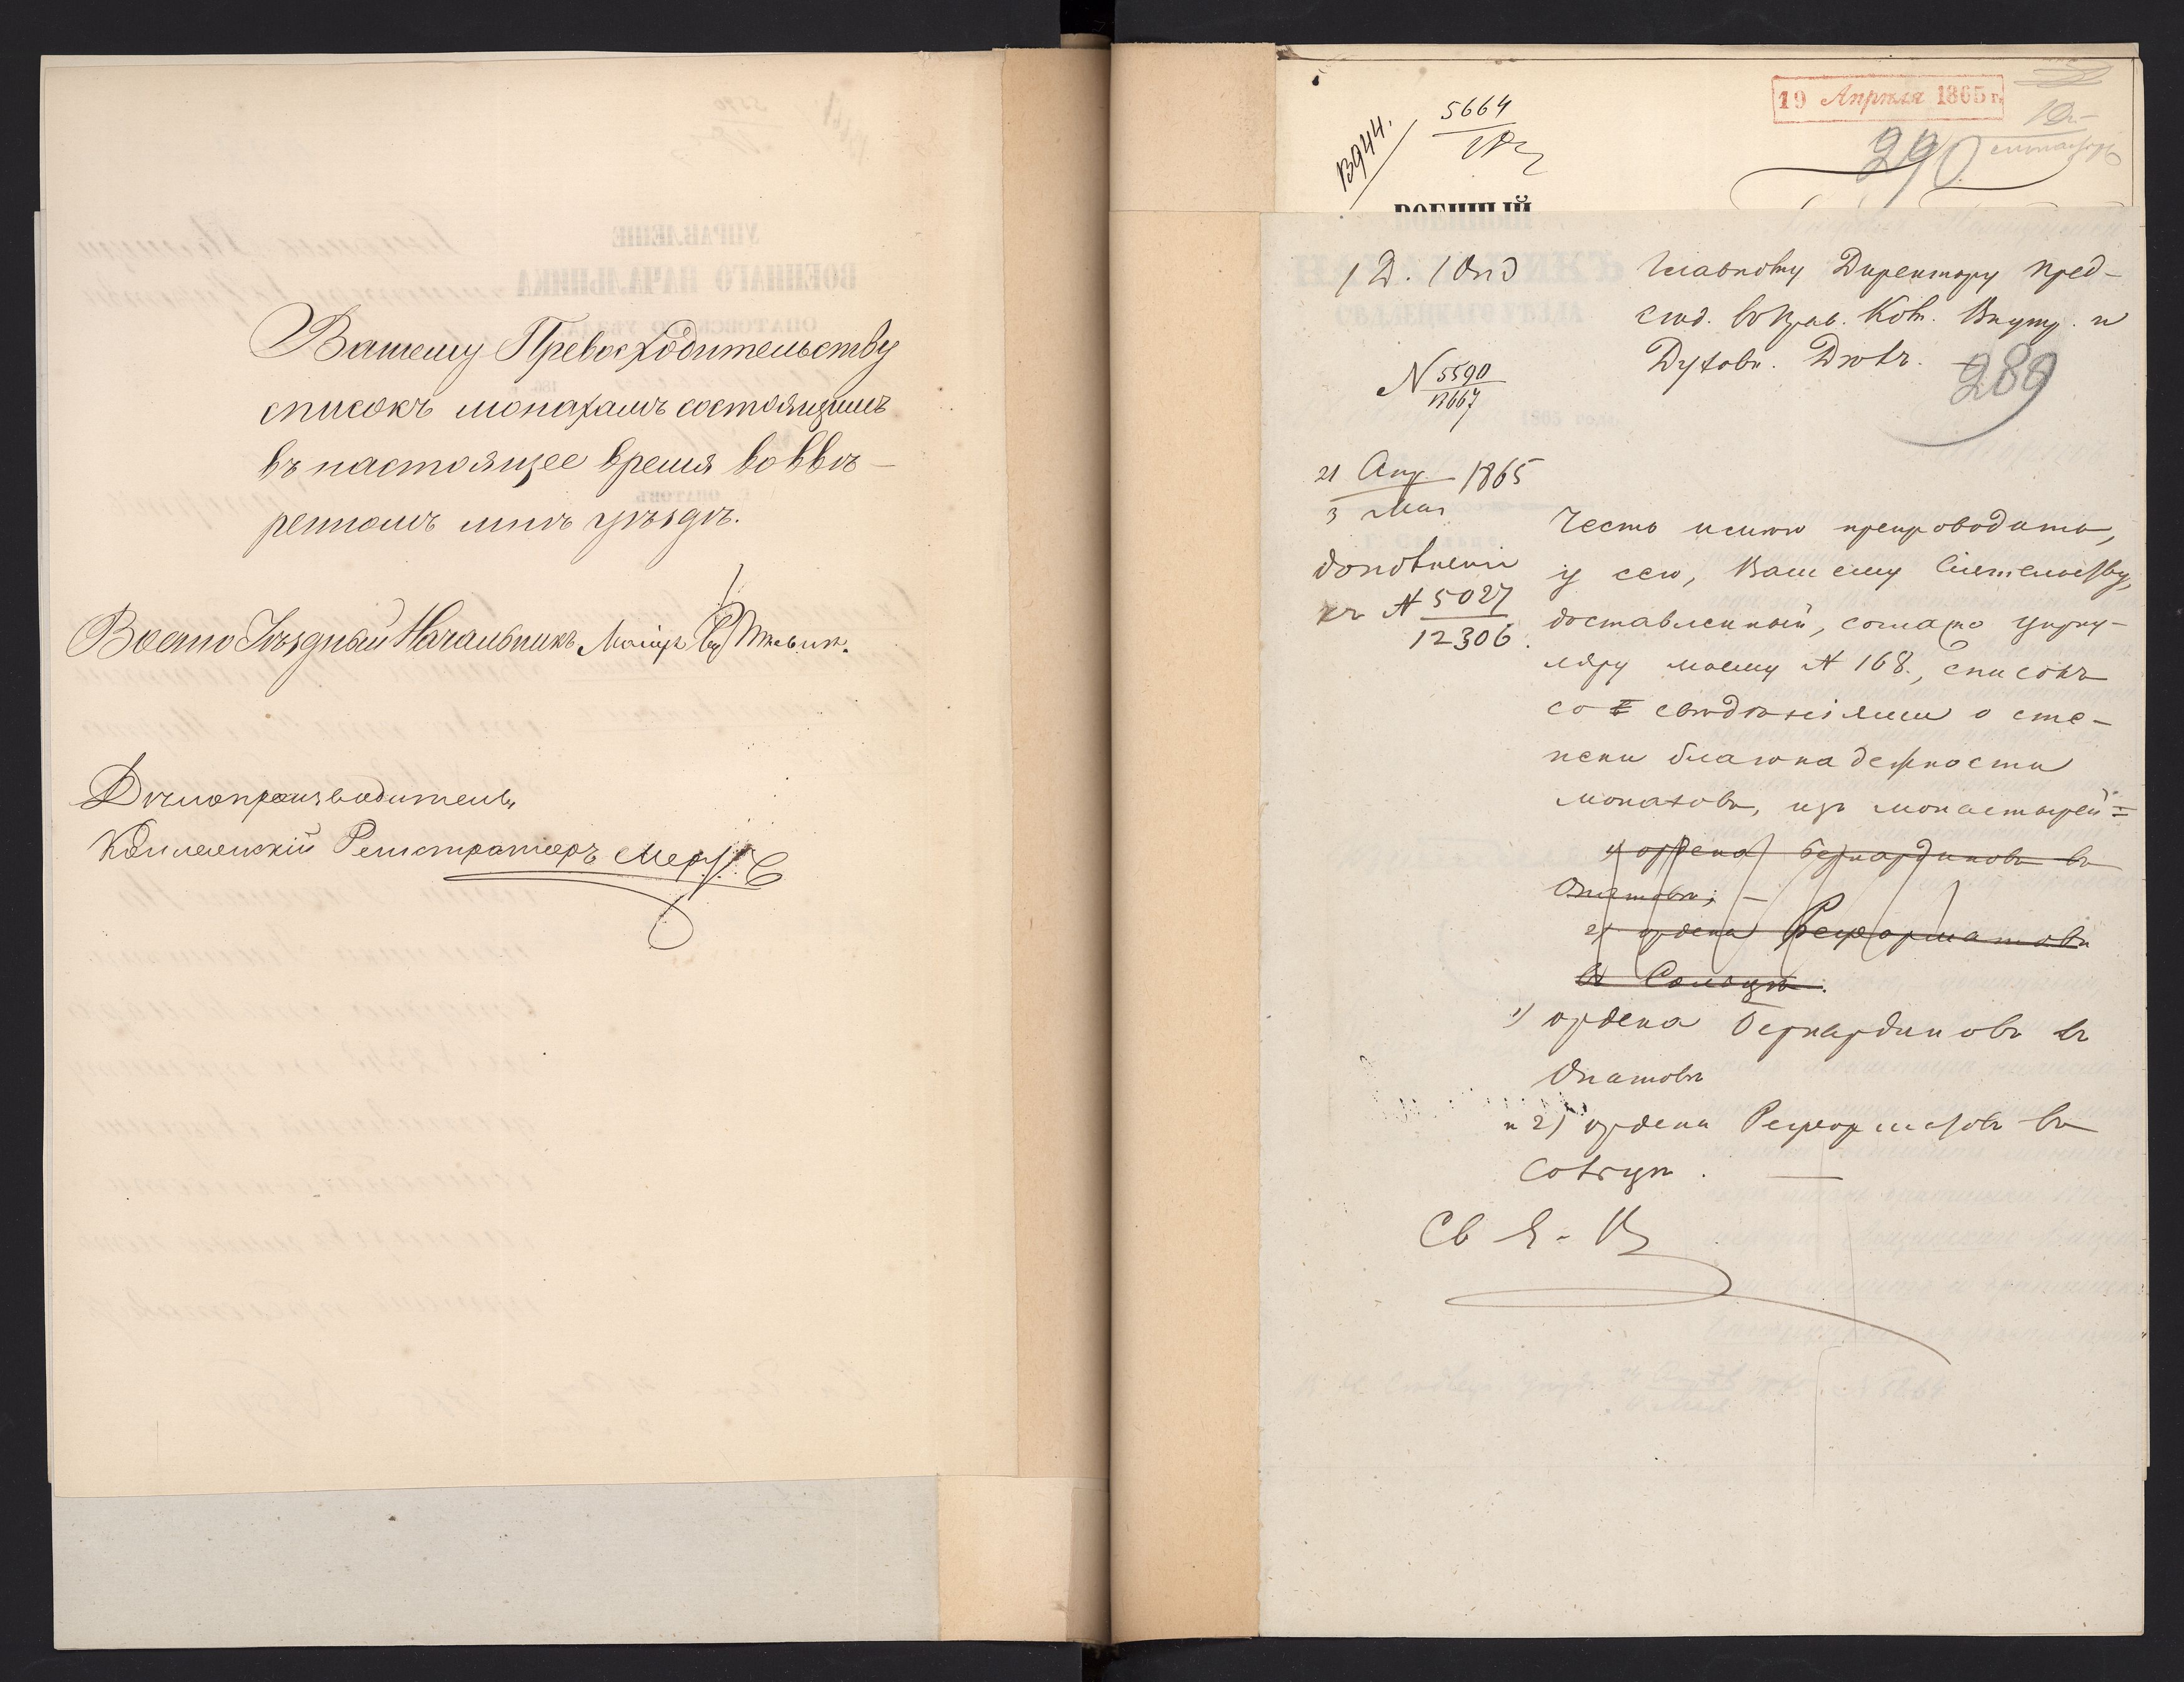 Вашему Превосходительству
списокъ монахамъ состоящимъ
въ настоящее время во ввѣ-
ренномъ мнѣ уѣздѣ.
Военно Уѣздный Начальникъ Маіоръ
Дѣлопроизводитель
Коллежскій Регистраторъ
13944.
5664
19 Апрѣля 1865 г.
290
ВОЕННЫЙ
1 Д. 1 Отд
Главному Директору Пред-
сѣд. въ Прав. Ком. Внутр. и
Духовн. Дѣлъ.
289
N 5590
21 Апр 1865
3 Мая
дополненіе
къ N 5027
12306.
Честь имѣю препроводить,
у сего, Вашему Сіятельству,
доставленный, согласно цирку-
ляру моему N 168., списокъ
со свѣдѣніями о сте-
пени благонадежности
монаховъ, изъ монастырей =
1) ордена Бернардиновъ въ
Опатовѣ; —
2) ордена Реформатовъ
въ Сольцѣ.
1) ордена Бернардиновъ въ
Опатовѣ
и 2) ордена Реформатовъ въ
Сольцѣ. —